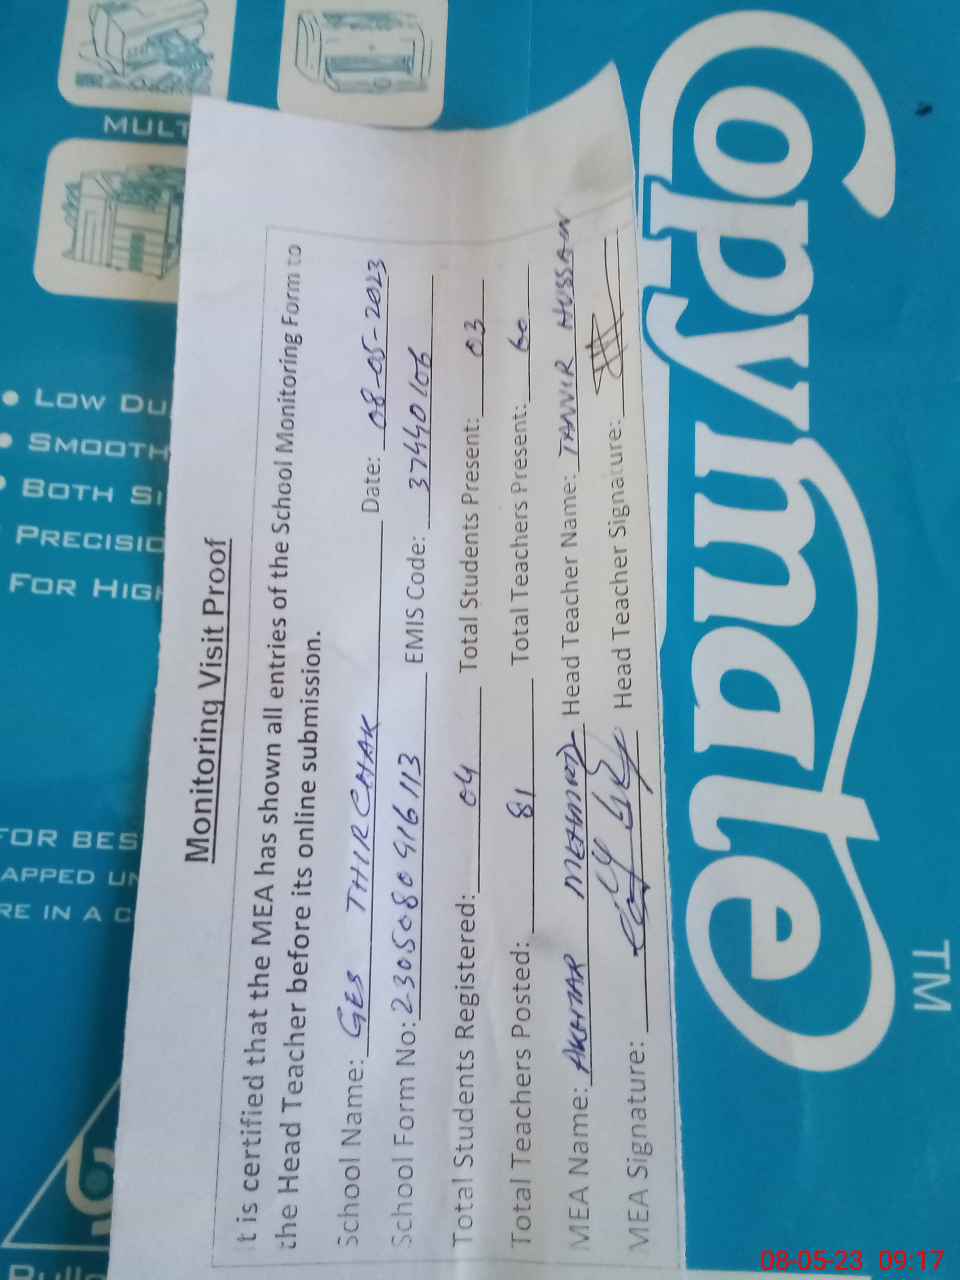 Monitoring Visit Proof
It is certified that the MEA has shown all entries of the School Monitoring Form to
the Head Teacher before its online submission.
School Name: GES THIRCHAK Date: 08-05-2023
School Form No: 2305080916113 EMIS Code: 37440106
Total Students Registered: 04 Total Students Present: 03
Total Teachers Posted: 81 Total Teachers Present: 60
MEA Name: AKHTAR MEHMOOD Head Teacher Name: TANVIR HUSSAIN
MEA Signature: Head Teacher Signature:
Copymate
TM
MULT
LOW DU
SMOOTH
BOTH SI
PRECISIO
FOR HIGH
FOR BES
APPED UN
RE IN A C
08-05-23 09:17